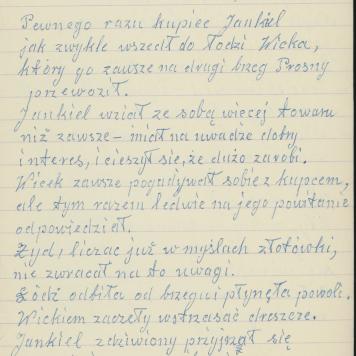 Pewnego razu kupiec Jankiel
jak zwykle wszedł do łodzi Wicka,
który go zawsze na drugi brzeg Prosny
przewoził.
Jankiel wziął ze sobą więcej towaru
niż zawsze – miał na uwadze dobry
interes, i cieszył się, że dużo zarobi.
Wicek zawsze pogadywał sobie z kupcem,
ale tym razem ledwie na jego powitanie
odpowiedział.
Żyd, licząc już w myślach złotówki,
nie zwracał na to uwagi.
Łódź odbiła od brzegu i płynęła powoli.
Wickiem zaczęły wstrząsać dreszcze.
Jankiel zdziwiony przyjrzał się